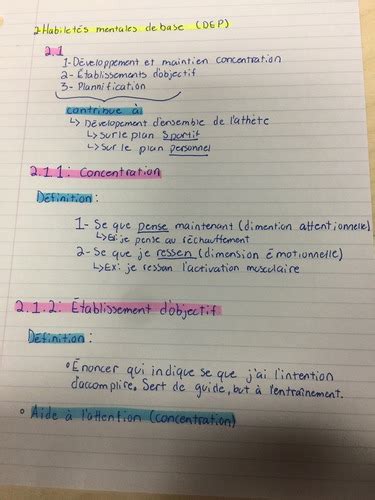 2-Habiletés mentales de base (DEP)
2.1
1- Développement et maintien concentration
2- Établissements d'objectif
3- Plannification
contribue à
↳ Dévelopement d'ensemble de l'athète
↳ Sur le plan Sportif
↳ Sur le plan personnel
2.1.1: Concentration
Définition:
1- Se que pense maintenant (dimention attentionnelle)
↳ Ex: je pense au réchauffement
2- Se que je ressen (dimension émotionnelle)
↳ Ex: je ressan l'activation musculaire
2.1.2: Établissement d'objectif
Définition:
• Énoncer qui indique se que j'ai l'intention
d'accomplire. Sert de guide, but à l'entraînement.
• Aide à l'attention (concentration)